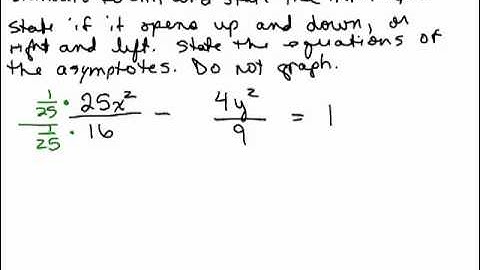 state if it opens up and down, or
right and left. State the equations of
the asymptotes. Do not graph.
1/25 · 25x² / 1/25 · 16 − 4y² / 9 = 1